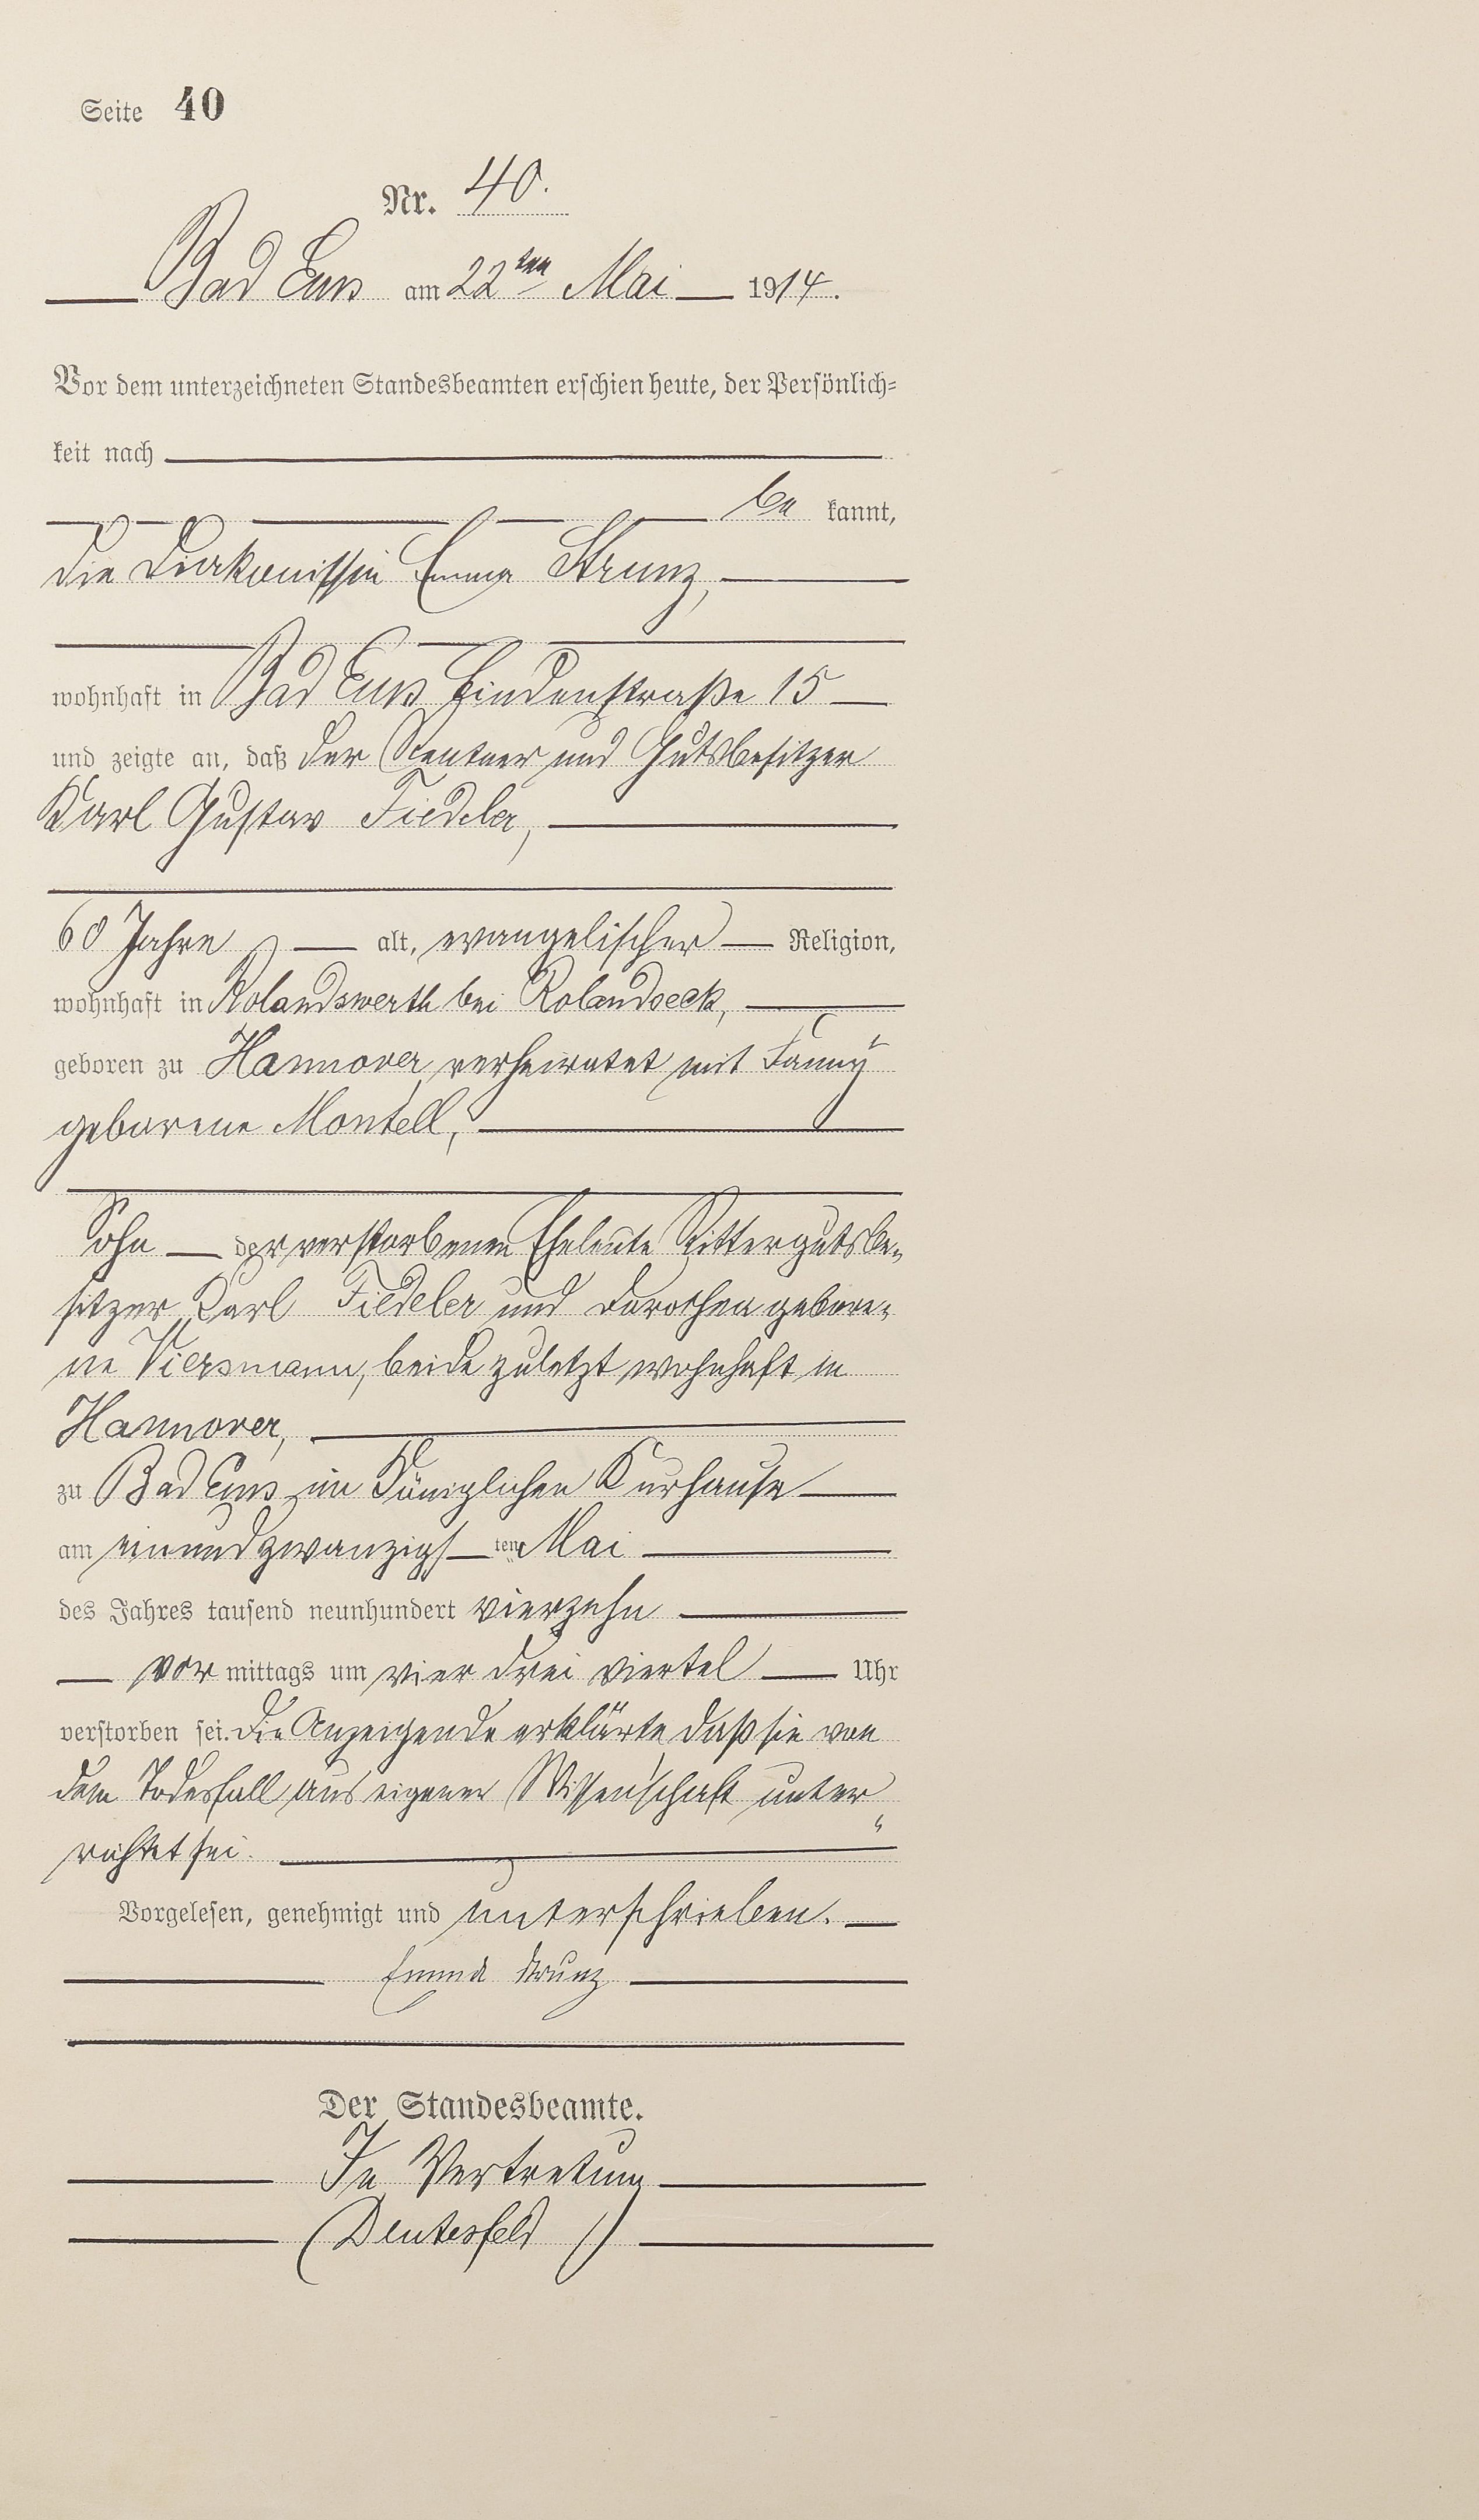 Seite 40
Nr. 40.
Bad Ems am 22ten Mai 1914.
Vor dem unterzeichneten Standesbeamten erschien heute, der Persönlich-
keit nach
be kannt,
die Diakonissin Emma Strunz,
wohnhaft in Bad Ems Lindenstraße 15
und zeigte an, daß der Rentner und Gutsbesitzer
Karl Gustav Fiedeler,
60 Jahre alt, evangelischer Religion,
wohnhaft in Rolandswerth bei Rolandseck,
geboren zu Hannover, verheiratet mit Fanny
geborene Montell,
Sohn der verstorbenen Eheleute Rittergutsbe-
sitzer Karl Fiedeler und Dorothea gebore-
ne Viersmann, beide zuletzt wohnhaft in
Hannover,
zu Bad Ems im Königlichen Kurhause
am einundzwanzigs ten Mai
des Jahres tausend neunhundert vierzehn
vor mittags um vier drei viertel Uhr
verstorben sei. Die Anzeigende erklärte, daß sie von
dem Todesfall aus eigener Wissenschaft unter
richtet sei.
Vorgelesen, genehmigt und unterschrieben.
Emma Strunz
Der Standesbeamte.
In Vertretung